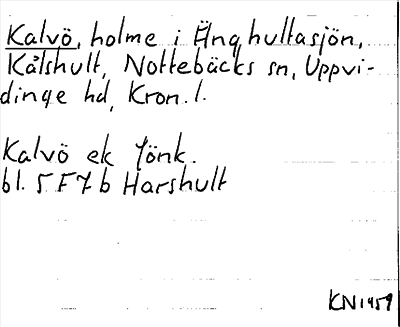 Kalvö, holme i Änghultasjön,
Kålshult, Nottebäcks sn, Uppvi-
dinge hd, Kron. l.
Kalvö ek Jönk.
bl. 5 F 7 b Harshult
KN 1959